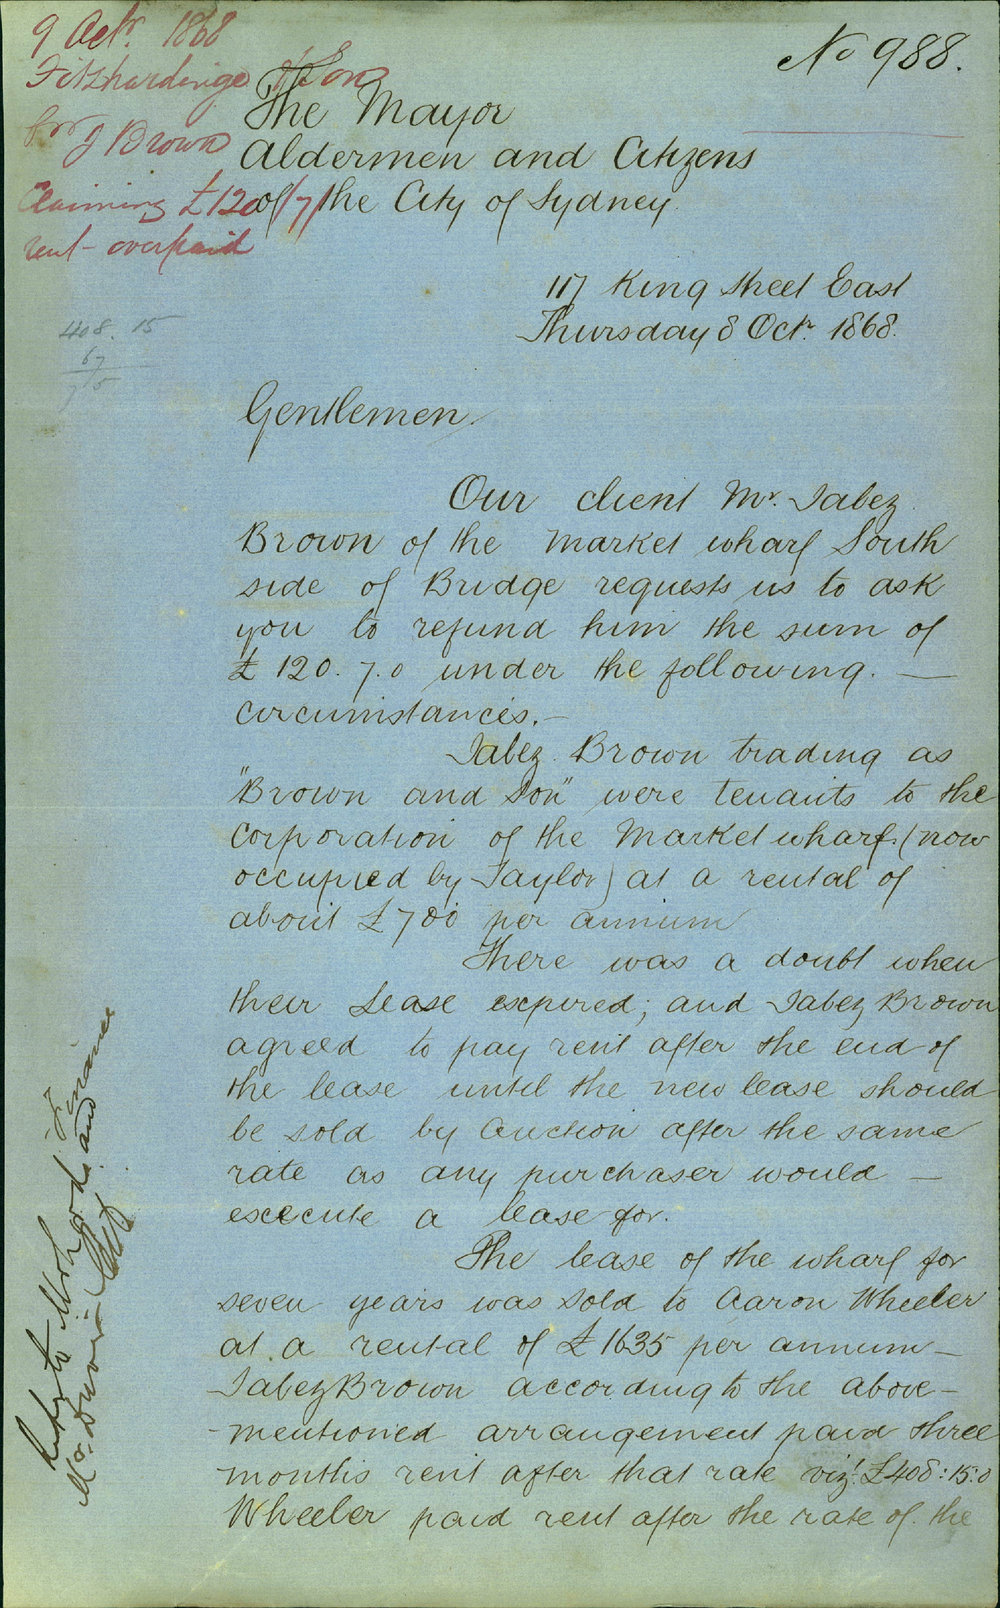 9 Octr. 1868
Fitzhardinge & Son
for J Brown
Claiming £120/7/
rent overpaid
No 988.
The Mayor
Aldermen and Citizens
of the City of Sydney.
117 King Street East
Thursday 8 Octr. 1868.
408. 15
67
Gentlemen.
Our client Mr. Jabez
Brown of the Market wharf South
side of Bridge requests us to ask
you to refund him the sum of
£120. 7. 0 under the following. —
circumstances. —
Jabez Brown trading as
"Brown and Son" were tenants to the
Corporation of the Market wharf (now
occupied by Taylor) at a rental of
about £700 per annum
There was a doubt when
their Lease expired; and Jabez Brown
agreed to pay rent after the end of
the lease until the new lease should
be sold by Auction after the same
rate as any purchaser would —
execute a lease for.
The lease of the wharf for
seven years was sold to Aaron Wheeler
at a rental of £1635 per annum —
Jabez Brown according to the above-
-mentioned arrangement paid three
months rent after that rate vizt. £408:15:0
Wheeler paid rent after the rate of the
Finance
and